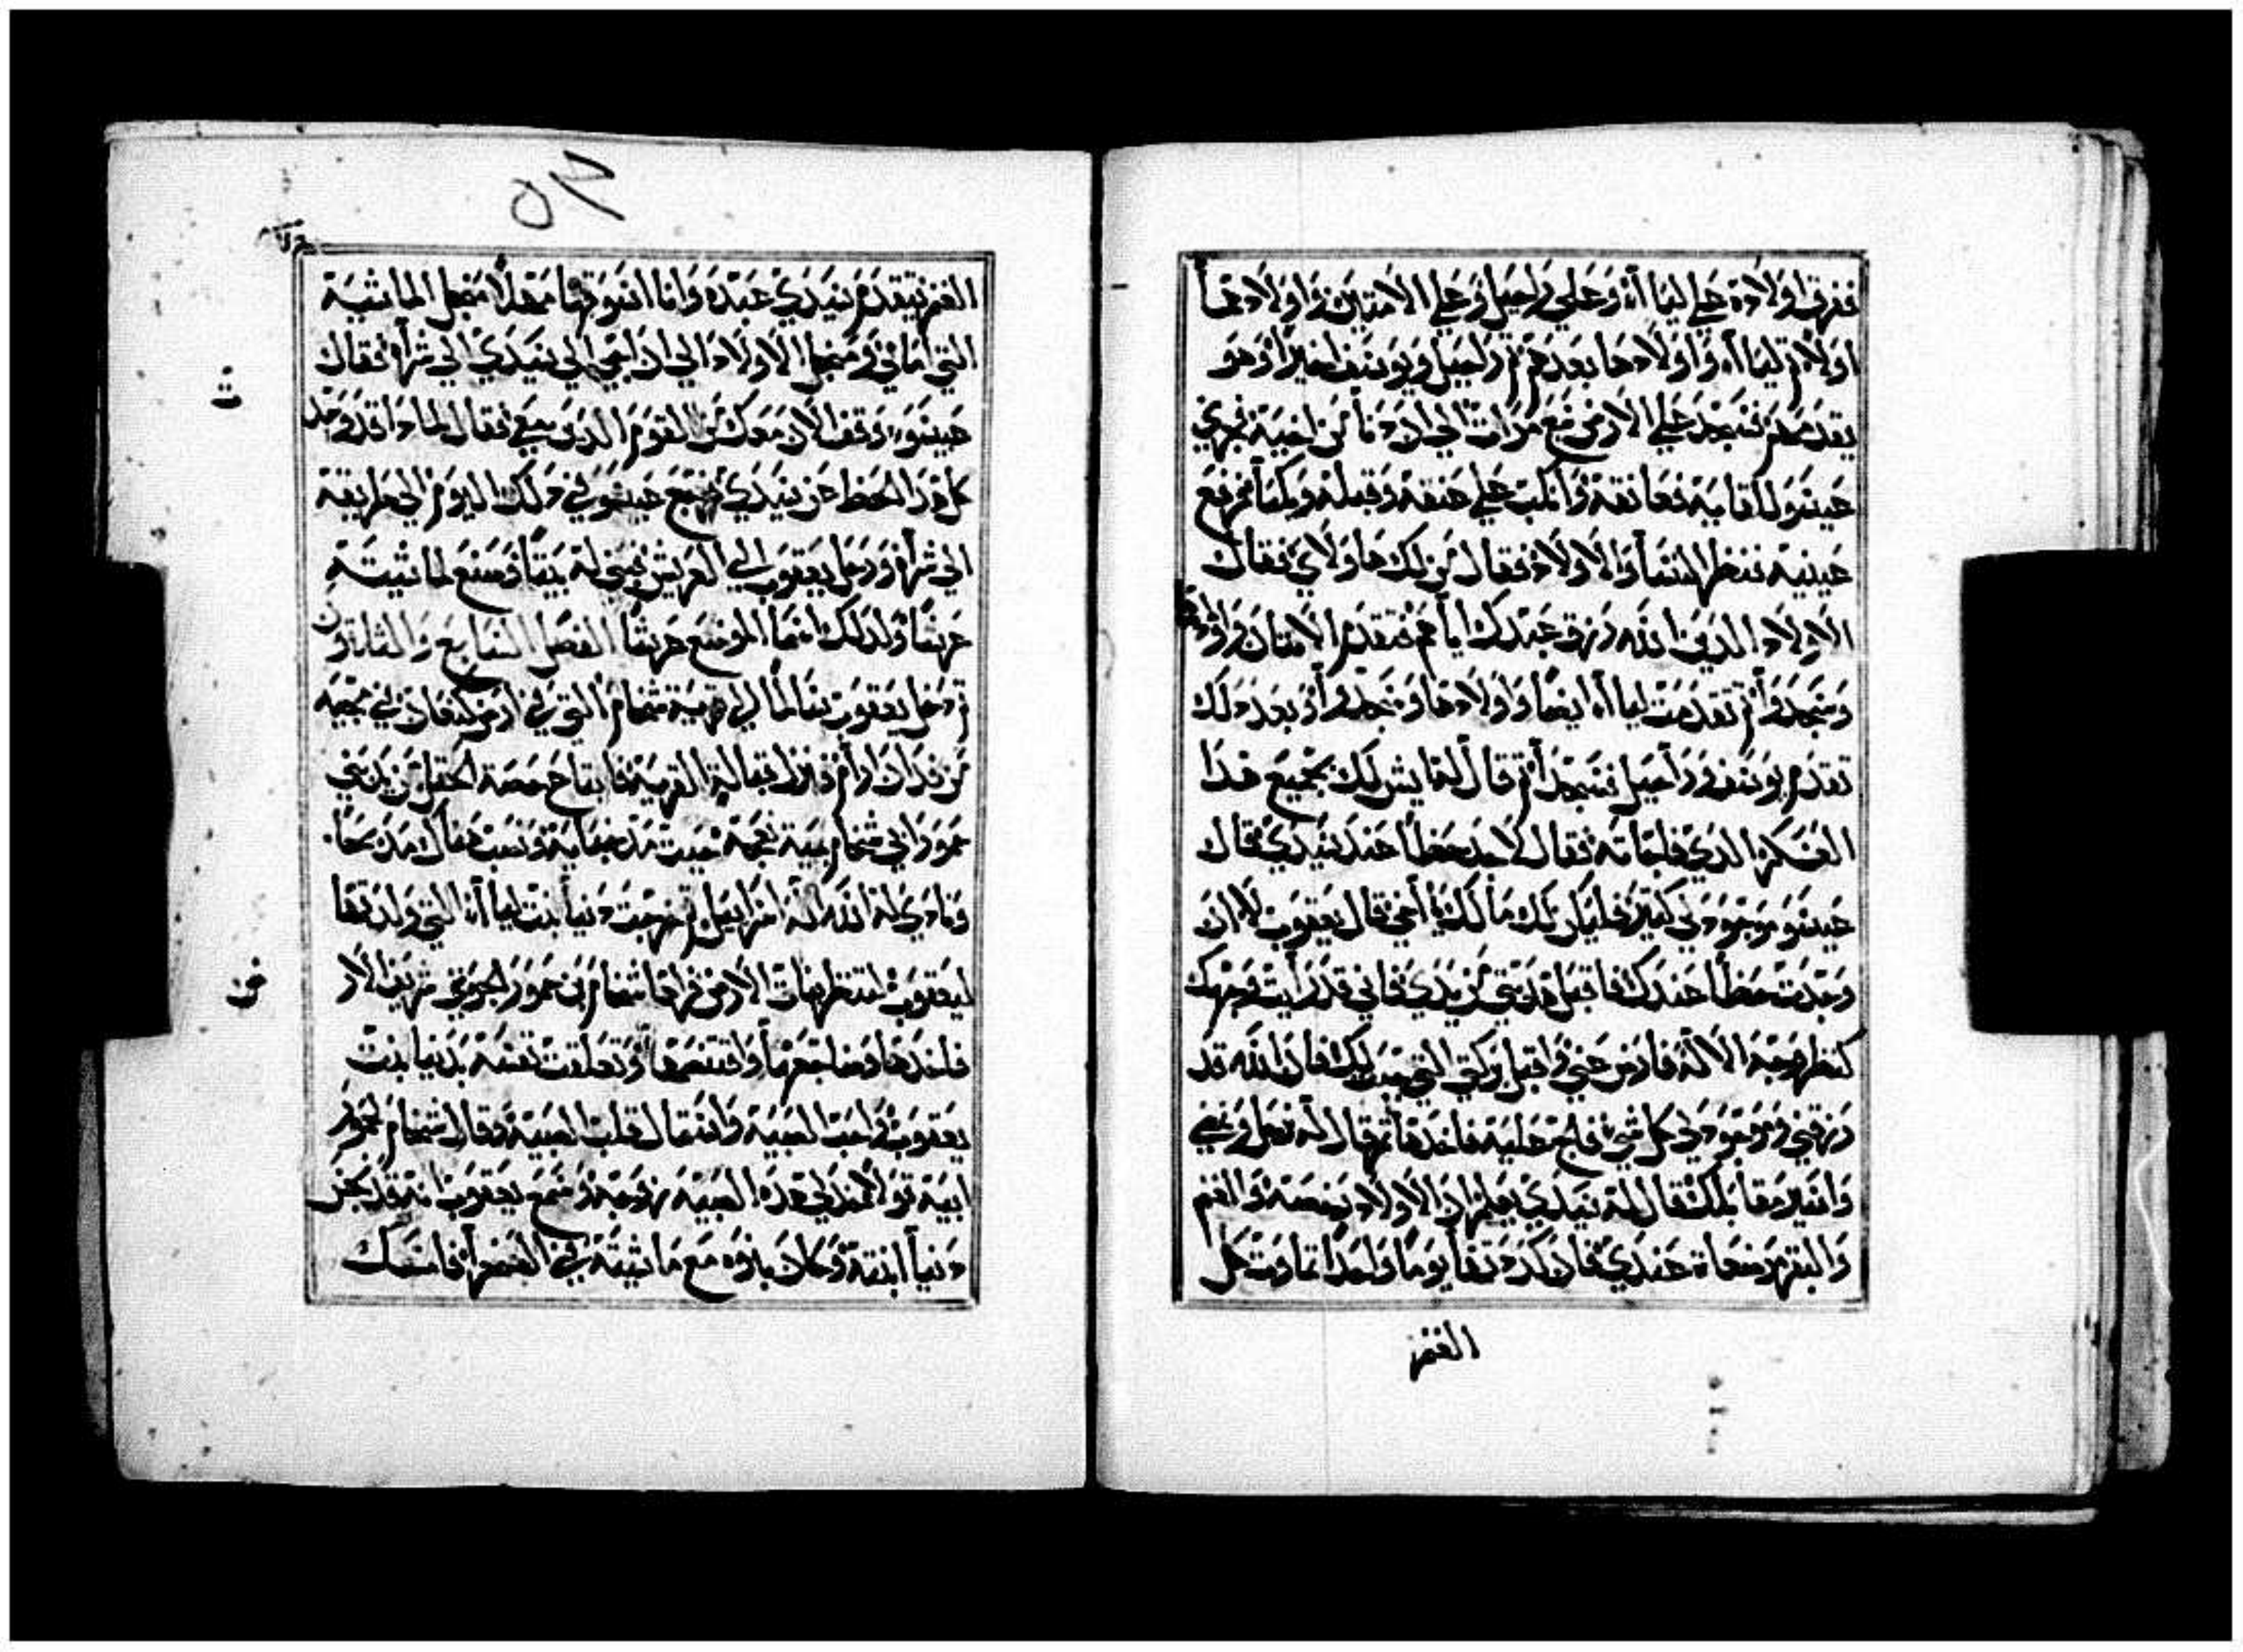 ففرق اولاده علي لياأه وعلي راحيل وعلي الامتين واولادهما
اولا ثم لياأه واولادها بعدهم ثم راحيل ويوسف اخيرا وهو
يقدمهم فسجد علي الارض سبع مرات الي ان دنا من اخيه فجري
عيسو للقايه فعانقه وانكب علي عنقه وقبله وبكيا ثم رفع
عينيه فنظر النسا والاولاد فقال من لك هاولاي فقال
الاولاد الذين الله رزق عبدك اياهم فتقدم الامتان واولادهما
وسجدوا ثم تقدمت لياأه ايضا واولادها وسجدوا وبعد ذلك
تقدم يوسف وراحيل فسجدا ثم قال له ايش لك بجميع هذا
العسكر الذي فاجاته فقال لاجد حظا عند سيدي فقال
عيسو موجود لي كثير فليكن لك مالك يا اخي فقال يعقوب لا ان
وجدت حظا عندك فاقبل هديتي من يدي فاني قد رايت وجهك
كنظر وجه الاله فارض عني واقبل بركتي التي جبت لك فان الله قد
رزقني وموجود لي كل شي فلج عليه فاخدها ثم قال له نرحل ونمضي
واسير مقابلك فقال له سيدي يعلم ان الاولاد رخصه والغنم
والبقر مرضعات عندي فان كددتها يوما واحدا تماوت كل
الغنم
٥٣
الغنم يتقدم سيدي عبده وانا اسوقها مهلا مهل الماشية
التي امامي ومهل الاولاد الي ان اجي الي سيدي الي شراه فقال
عيسو اوقف الان معك من القوم الذين معي فقال لماذا قد وجد
كل هذا الحظ عن سيدي فرجع عيسو في ذلك اليوم الي طريقه
الي شراه ورحل يعقوب الي العريش فبني له بيتا وصنع لماشيته
عريشا ولذلك اسما الموضع عريشا الفصل السابع والثلاثون
ثم دخل يعقوب سالما الي قرية شخام التي في ارض كنعان في مجيه
من فدان ارام فنزل قبالة القرية فابتاع حصة الحقل من يد بني
حمور ابي شخام بمية نعجة حيث مد خبايه ونصب هناك مدبحا
ونادي له الله اله اسرائيل ثم خرجت دنيا بنت لياأه التي ولدتها
ليعقوب لتنظر بنات الارض فراها شخام بن حمور الحوي شريف الارض
فاخدها وضاجعها وافتضحها وتعلقت نفسه بدنيا بنت
يعقوب واحب الصبية واستمال قلب الصبية وقال شخام لحمور
ابيه قولا خد لي هذه الصبية زوجة وسمع يعقوب انه قد نجس
دنيا ابنته وكان بنوه مع ماشيته في الصحرا فامسك